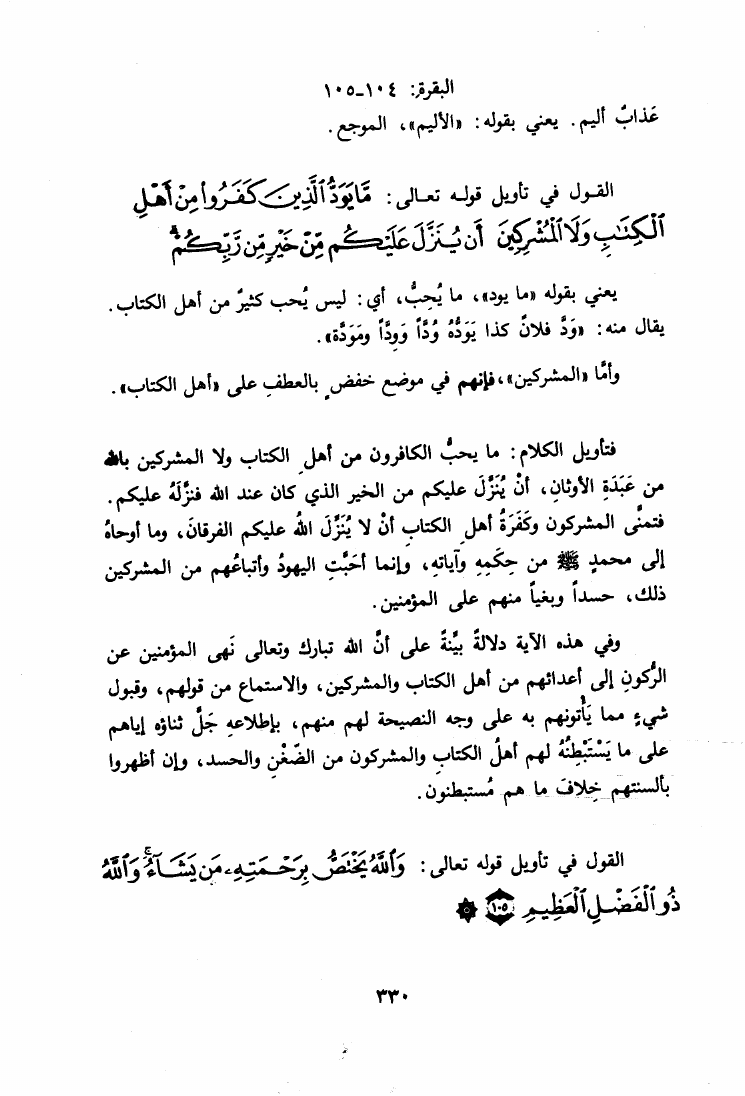 البقرة: ١٠٤-١٠٥
عَذابٌ أليم. يعني بقوله: «الأليم»، الموجع.
القـول في تأويل قولـه تعـالى: مَّا يَوَدُّ ٱلَّذِينَ كَفَرُوا۟ مِنْ أَهْلِ
ٱلْكِتَٰبِ وَلَا ٱلْمُشْرِكِينَ أَن يُنَزَّلَ عَلَيْكُم مِّنْ خَيْرٍ مِّن رَّبِّكُمْ ۗ
يعني بقوله «ما يود»، ما يُحِبُّ، أي: ليس يُحب كثيرٌ من أهل الكتاب.
يقال منه: «وَدَّ فلانٌ كذا يَوَدُّهُ وُدَّاً وَوِدَّاً ومَوَدَّة».
وأمَّا «المشركين»،فإنهم في موضع خفضٍ بالعطفِ على «أهل الكتاب».
فتأويل الكلام: ما يحبُّ الكافرون من أهلِ الكتاب ولا المشركين بالله
من عَبَدَةِ الأوثانِ، أنْ يُنَزَّلَ عليكم من الخير الذي كان عند الله فنزَّلَهُ عليكم.
فتمنَّى المشركون وكَفَرَةُ أهلِ الكتابِ أنْ لا يُنَزِّلَ اللهُ عليكم الفرقانَ، وما أوحاهُ
إلى محمدٍ ﷺ من حِكَمِهِ وآياتهِ، وإنما أحَبَّتِ اليهودُ وأتباعُهم من المشركين
ذلك، حسداً وبغياً منهم على المؤمنين.
وفي هذه الآية دلالةٌ بيِّنةٌ على أنَّ الله تبارك وتعالى نَهى المؤمنين عن
الرُّكونِ إلى أعدائهم من أهل الكتاب والمشركين، والاستماع من قولهم، وقبول
شيءٍ مما يَأتونهم به على وجه النصيحة لهم منهم، بإطلاعهِ جَلَّ ثناؤه إياهم
على ما يَسْتَبْطِنُهُ لهم أهلُ الكتابِ والمشركون من الضّغْنِ والحسد، وإن أظهروا
بألسنتهم خِلافَ ما هم مُستبطنون.
القول في تأويل قوله تعالى: وَٱللَّهُ يَخْتَصُّ بِرَحْمَتِهِۦ مَن يَشَآءُ ۚ وَٱللَّهُ
ذُو ٱلْفَضْلِ ٱلْعَظِيمِ ١٠٥
٣٣٠